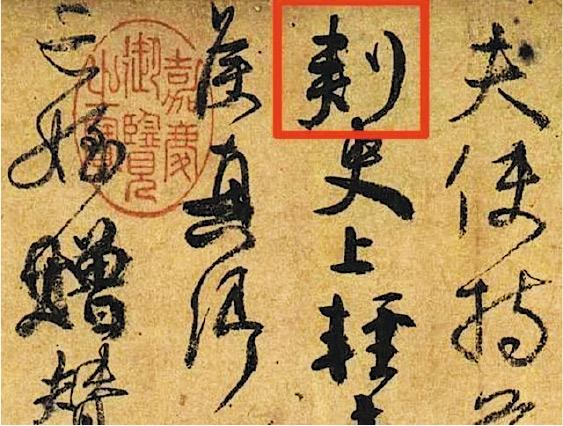 夫使持
刺史上輕
侯真卿
亡姪贈贊
嘉慶御覽之寶